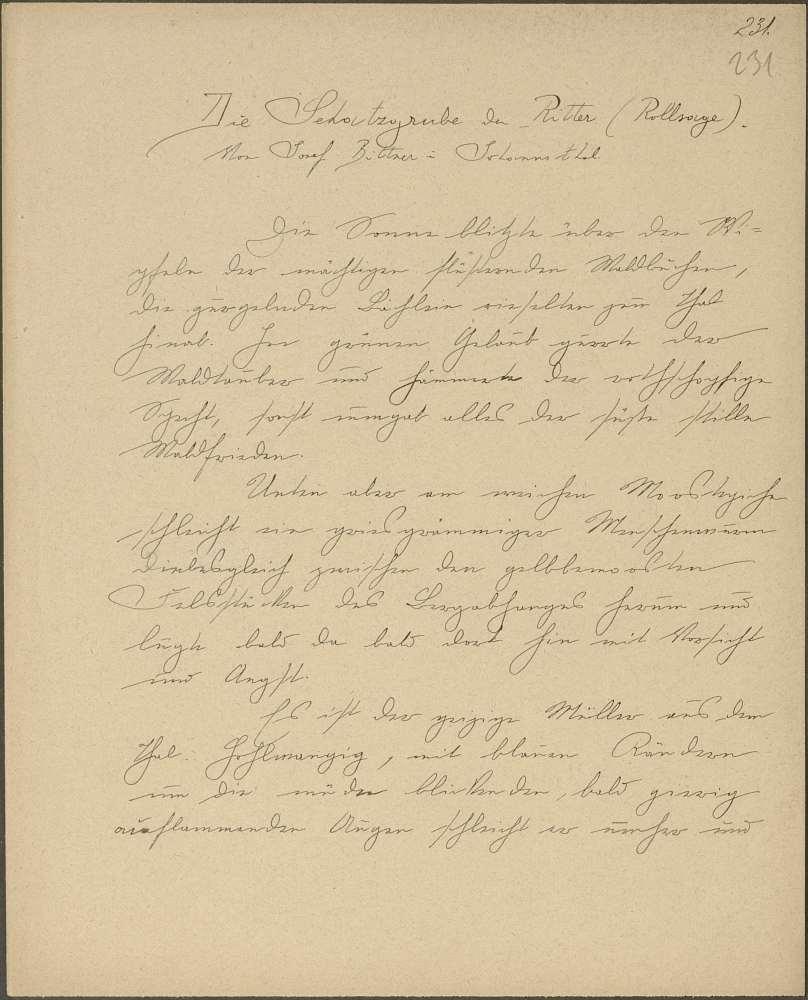 231.
231
Die Schatzgrube der Ritter (Rollsage).
Von Josef Bittner = Johannesthal
Die Sonne blitzte über den Wi=
pfeln der mächtigen flüsternden Waldbuchen,
die gurgelnden Bächlein rieselten zum Thal
hinab. Im grünen Gelaub gurrte der
Waldtauber und hämmerte der rothschopfige
Specht, sonst umgab alles der süße stille
Waldfrieden.
Unten aber am weichen Moosteppiche
schleicht ein griesgrämmiger Menschenwurm
diebesgleich zwischen den gelbbemoosten
Felsstücken des Bergabhanges herum und
lugte bald da bald dort hin mit Vorsicht
und Angst.
Es ist der geizige Müller aus dem
Thal. Hohlwangig, mit blauen Rändern
um die müde blickenden, bald gierig
aufflammenden Augen schleicht er umher und